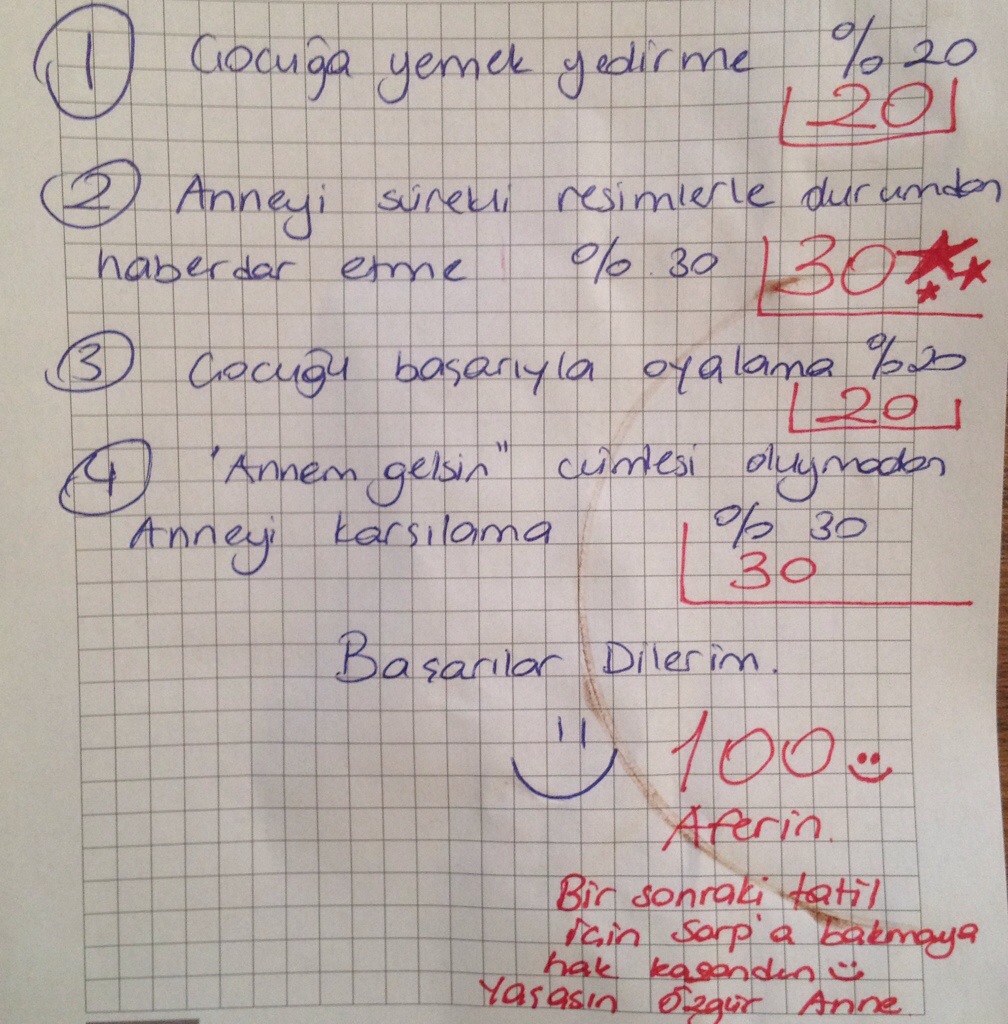 1 Çocuğa yemek yedirme % 20
20
2 Anneyi sürekli resimlerle durumdan
haberdar etme % 30 30
3 Çocuğu başarıyla oyalama % 20
20
4 "Annem gelsin" cümlesi duymadan
Anneyi karşılama % 30
30
Başarılar Dilerim.
100
Aferin.
Bir sonraki tatil
için Sarp'a bakmaya
hak kazandın
Yaşasın Özgür Anne